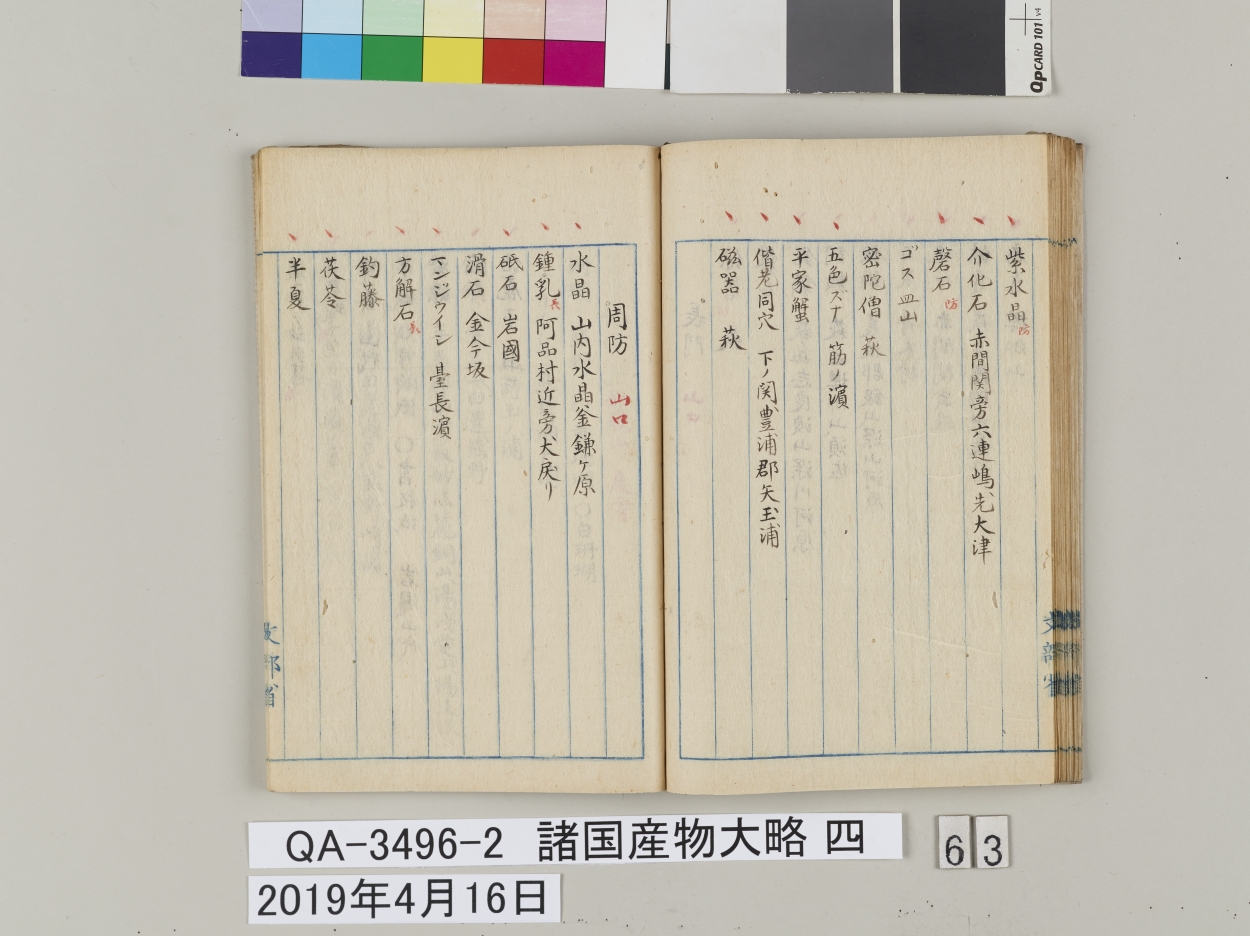 QpCARD 101 v4
紫水晶 防
介化石 赤間関旁六連嶋先大津
磬石 防
ゴス皿山
密陀僧 萩
五色ズナ 筋ノ濱
平家蟹
偕老同穴 下ノ関豊浦郡矢玉浦
磁器 萩
周防 山口
水晶 山内水晶釜鎌ヶ原
鍾乳 長 阿品村近旁犬戻リ
砥石 岩國
滑石 金今坂
マンジウイシ 臺長濵
方解石 長
釣藤
茯苓
半夏
文部省
文部省
QA-3496-2 諸国産物大略 四
63
2019年4月16日